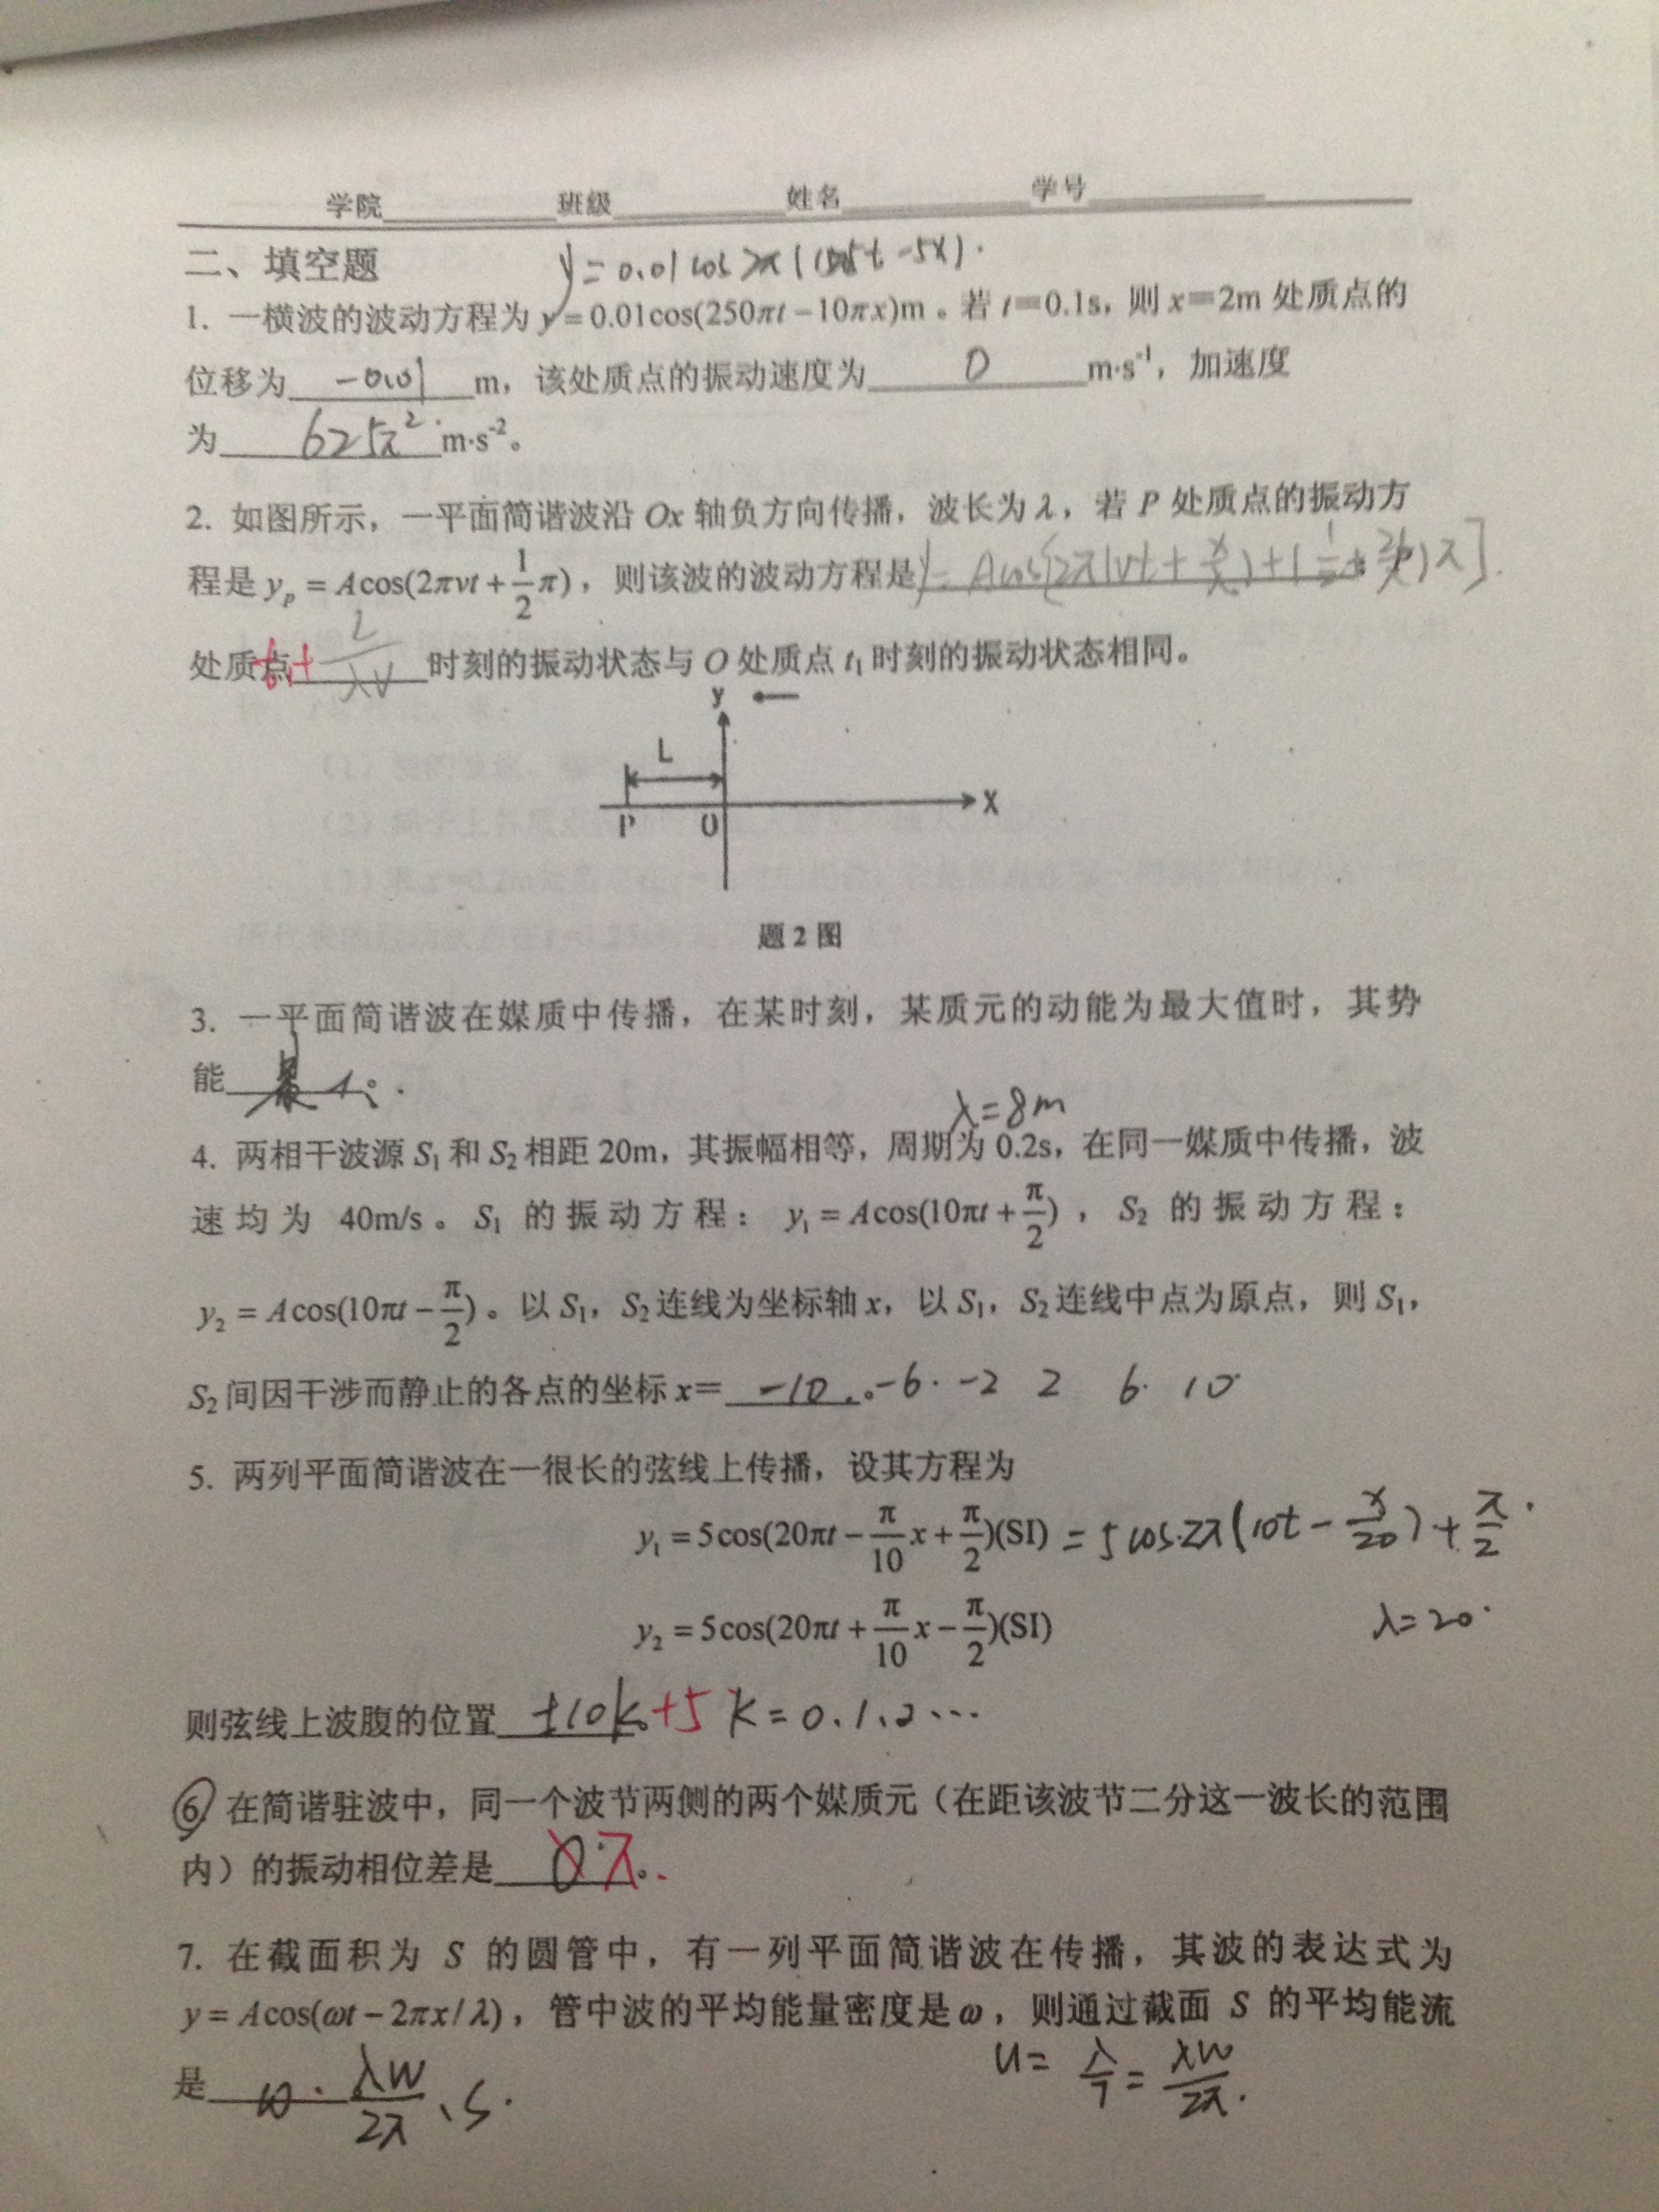 学院 班级 姓名 学号
二、填空题
y = 0.01 cos 2π (125t - 5x).
1. 一横波的波动方程为 y = 0.01cos(250πt − 10πx)m 。若 t=0.1s, 则 x=2m 处质点的
位移为 -0.01 m, 该处质点的振动速度为 0 m·s⁻¹, 加速度
为 625π² m·s⁻²。
2. 如图所示, 一平面简谐波沿 Ox 轴负方向传播, 波长为 λ, 若 P 处质点的振动方
程是 yₚ = Acos(2πνt + 1/2 π) , 则该波的波动方程是 y = Acos[2π(νt + x/λ) + (1/2 +
处质点 t₁+ L/λν 时刻的振动状态与 O 处质点 t₁ 时刻的振动状态相同。
y
L
P O X
题 2 图
3. 一平面简谐波在媒质中传播, 在某时刻, 某质元的动能为最大值时, 其势
能 最大.
λ=8m
4. 两相干波源 S₁ 和 S₂ 相距 20m, 其振幅相等, 周期为 0.2s, 在同一媒质中传播, 波
速均为 40m/s 。S₁ 的振动方程: y₁ = Acos(10πt + π/2) , S₂ 的振动方程:
y₂ = Acos(10πt − π/2) 。以 S₁, S₂ 连线为坐标轴 x, 以 S₁, S₂ 连线中点为原点, 则 S₁,
S₂ 间因干涉而静止的各点的坐标 x= -10 . 。 -6 . -2 2 6 . 10
5. 两列平面简谐波在一很长的弦线上传播, 设其方程为
y₁ = 5cos(20πt − π/10 x + π/2)(SI) = 5 cos·2π(10t - x/20) + π/2 .
y₂ = 5cos(20πt + π/10 x − π/2)(SI) λ=20.
则弦线上波腹的位置 ±10k。+5 k = 0.1、2 …
6 在简谐驻波中, 同一个波节两侧的两个媒质元（在距该波节二分这一波长的范围
内）的振动相位差是 0 π。
7. 在截面积为 S 的圆管中, 有一列平面简谐波在传播, 其波的表达式为
y = Acos(ωt − 2πx/λ) , 管中波的平均能量密度是 ω , 则通过截面 S 的平均能流
是 w · λw/2π 、S. u = λ/T = λw/2π.